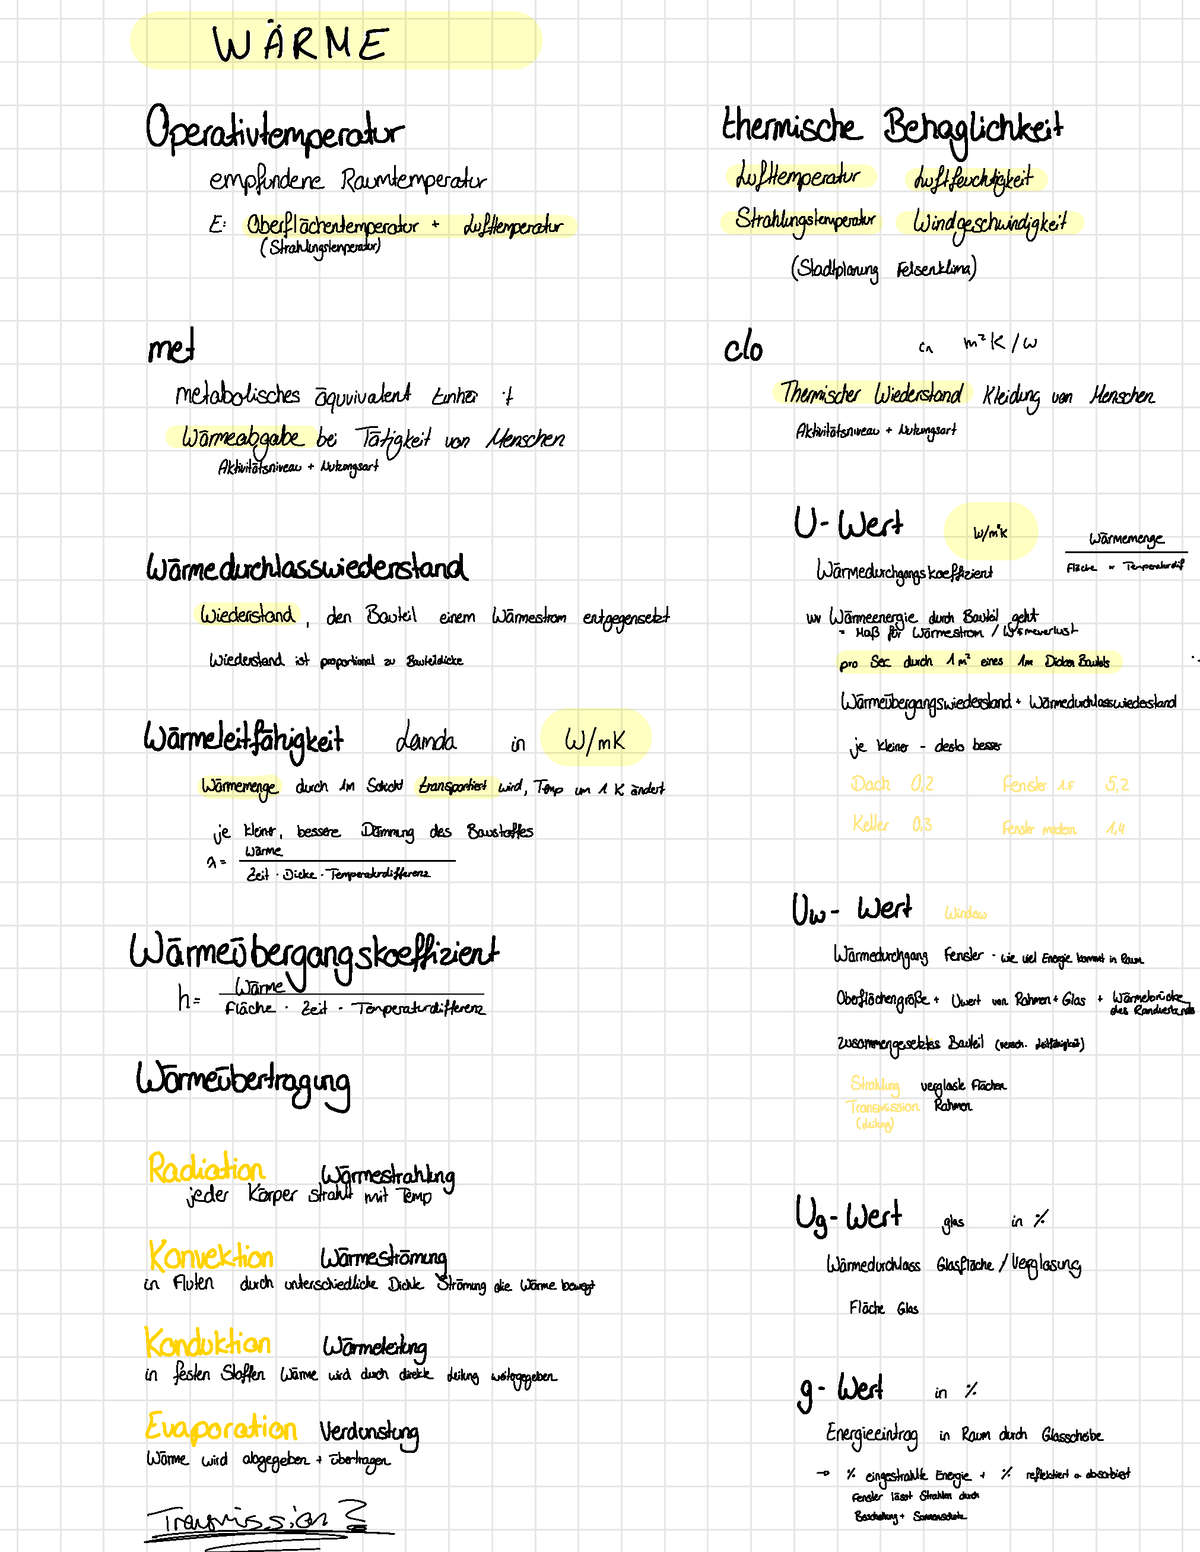 WÄRME
Operativtemperatur
empfundene Raumtemperatur
E: Oberflächentemperatur + Lufttemperatur
(Strahlungstemperatur)
met
metabolisches äquvivalent Einheit
Wärmeabgabe bei Tätigkeit von Menschen
Aktivitätsniveau + Nutzungsart
Wärmedurchlasswiederstand
Wiederstand, den Bauteil einem Wärmestrom entgegensetzt
Wiederstand ist proportional zu Bauteildicke
Wärmeleitfähigkeit Lamda in W/mK
Wärmemenge durch 1m Schicht transportiert wird, Temp um 1 K ändert
je kleiner, bessere Dämmung des Baustoffes
λ = Wärme
Zeit · Dicke · Temperaturdifferenz
Wärmeübergangskoeffizient
h = Wärme
Fläche · Zeit · Temperaturdifferenz
Wärmeübertragung
Radiation Wärmestrahlung
jeder Körper strahlt mit Temp
Konvektion Wärmeströmung
in Fluten durch unterschiedliche Dichte Strömung die Wärme bewegt
Konduktion Wärmeleitung
in festen Stoffen Wärme wird durch direkte Leitung weitergegeben
Evaporation Verdunstung
Wärme wird abgegeben + übertragen
Transmission?
thermische Behaglichkeit
Lufttemperatur Luftfeuchtigkeit
Strahlungstemperatur Windgeschwindigkeit
(Stadtplanung Felsenklima)
clo in m²K/W
Thermischer Wiederstand Kleidung von Menschen
Aktivitätsniveau + Nutzungsart
U-Wert W/m²K Wärmemenge
Fläche · Temperaturdif
Wärmedurchgangskoeffizient
wv Wärmeenergie durch Bauteil geht
= Maß für Wärmestrom / Wärmeverlust
pro Sec durch 1m² eines 1m Dicken Bauteils
Wärmeübergangswiederstand + Wärmedurchlasswiederstand
je kleiner - desto besser
Dach 0,2 Fenster 1.F 5,2
Keller 0,3 Fenster modern 1,4
Uw-Wert Window
Wärmedurchgang Fenster - wie viel Energie kommt in Raum
Oberflächengröße + Uwert von Rahmen + Glas + Wärmebrücke
des Randverbunds
zusammengesetztes Bauteil (versch. Leitfähigkeit)
Strahlung verglaste Flächen
Transmission Rahmen
(Leitung)
Ug-Wert glas in %
Wärmedurchlass Glasfläche / Verglasung
Fläche Glas
g-Wert in %
Energieeintrag in Raum durch Glasscheibe
→ % eingestrahlte Energie + % reflektiert o absorbiert
Fenster lässt Strahlen durch
Beschattung + Sonnenschutz